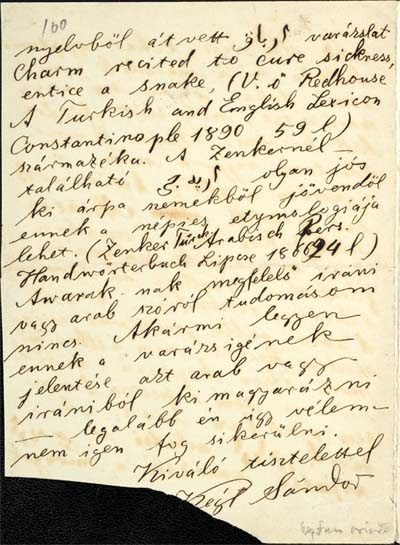 100
nyelvből átvett varázslat
Charm recited to cure sickness,
entice a snake, (V. ö Redhouse
A Turkish and English Lexicon
Constantinople 1890 59 l)
származéka. A Zenkernél
található olyan jós
ki árpa nemekből jövendöl
ennek a népies etymologiája
lehet. (Zenker Türk. Arabisch Pers.
Handwörterbuch Lipcse 24 l)
Awarak nak megfelelő iráni
vagy arab szóról tudomásom
nincs. Akármi legyen
ennek a varázsigének
jelentése azt arab vagy
irániból kimagyarázni
— legalább én úgy vélem —
nem igen fog sikerülni.
Kiváló tisztelettel
Kégl Sándor